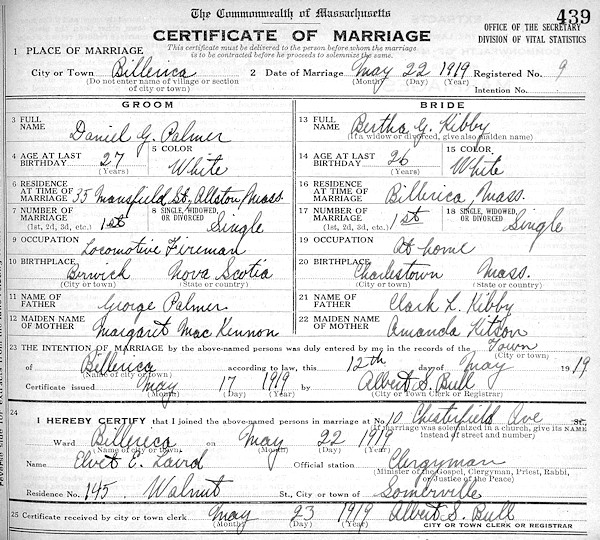 The Commonwealth of Massachusetts
439
CERTIFICATE OF MARRIAGE
OFFICE OF THE SECRETARY
DIVISION OF VITAL STATISTICS
This certificate must be delivered to the person before whom the marriage
is to be contracted before he proceeds to solemnize the same.
1 PLACE OF MARRIAGE
City or Town Billerica 2 Date of Marriage May 22 1919 Registered No. 9
(Do not enter name of village or section (Month) (Day) (Year) Intention No.
of city or town)
GROOM BRIDE
3 FULL NAME Daniel G. Palmer
13 FULL NAME Bertha G. Kibby
(If a widow or divorced, give also maiden name)
4 AGE AT LAST BIRTHDAY 27 (Years) 5 COLOR White
14 AGE AT LAST BIRTHDAY 26 (Years) 15 COLOR White
6 RESIDENCE AT TIME OF MARRIAGE 35 Mansfield St, Allston, Mass.
16 RESIDENCE AT TIME OF MARRIAGE Billerica, Mass.
7 NUMBER OF MARRIAGE 1st (1st, 2d, 3d, etc.) 8 SINGLE, WIDOWED OR DIVORCED Single
17 NUMBER OF MARRIAGE 1st (1st, 2d, 3d, etc.) 18 SINGLE, WIDOWED OR DIVORCED Single
9 OCCUPATION Locomotive Fireman
19 OCCUPATION At home
10 BIRTHPLACE Berwick Nova Scotia
(City or town) (State or country)
20 BIRTHPLACE Charlestown Mass.
(City or town) (State or country)
11 NAME OF FATHER George Palmer
21 NAME OF FATHER Clark L. Kibby
12 MAIDEN NAME OF MOTHER Margaret Mac Kennon
22 MAIDEN NAME OF MOTHER Amanda Kitson
23 THE INTENTION OF MARRIAGE by the above-named persons was duly entered by me in the records of the Town
(City or town)
of Billerica according to law, this 12th day of May 1919
(Name of city or town)
Certificate issued May 17 1919 by Albert S. Bull
(Month) (Day) (Year) (City or Town Clerk or Registrar)
24 I HEREBY CERTIFY that I joined the above-named persons in marriage at No. 10 Chesterfield Ave St.,
(If marriage was solemnized in a church, give its NAME
instead of street and number)
Ward Billerica on May 22 1919
(Name of city or town) (Month) (Day) (Year)
Name Elvet E. Laird Official station Clergyman
(Minister of the Gospel, Clergyman, Priest, Rabbi,
or Justice of the Peace)
Residence No. 145 Walnut St., City or town of Somerville
25 Certificate received by city or town clerk May 23 1919 Albert S. Bull
(Month) (Day) (Year) CITY OR TOWN CLERK OR REGISTRAR